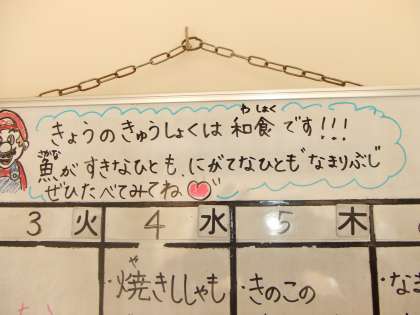 きょうのきゅうしょくは 和食です!!!
わ しょく
魚がすきなひとも、にがてなひとも"なまりぶし"
さかな
ぜひたべてみてね
3 火 4 水 5 木
や
・焼きししゃも ・きのこの ・なま